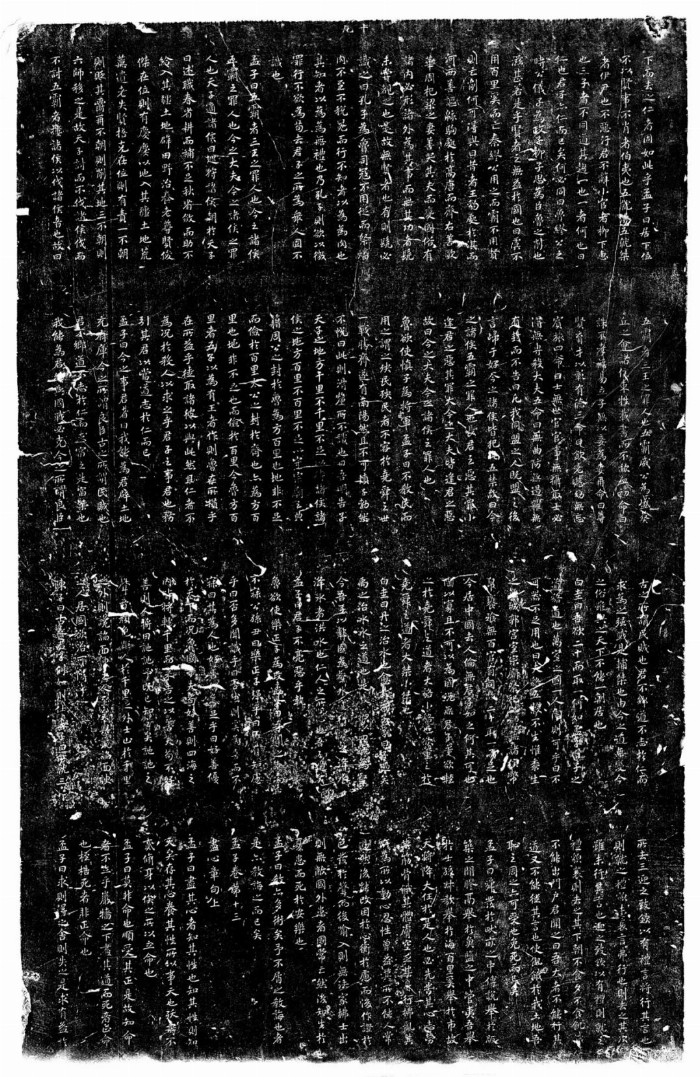 下而去之仁者固如此乎孟子曰居下位
不以賢事不肖者伯夷也五就湯五就桀
者伊尹也不惡汙君不辭小官者柳下惠
也三子者不同道其趨一也一者何也曰
仁也君子亦仁而已矣何必同曰魯繆公之
時公儀子為政子柳子思為臣魯之削也
滋甚若是乎賢者之無益於國也曰虞不
用百里奚而亡秦穆公用之而霸不用賢
則亡削何可得與曰昔者王豹處於淇而
河西善謳緜駒處於高唐而齊右善歌
華周杞梁之妻善哭其夫而變國俗有
諸內必形諸外為其事而無其功者髡
未嘗覩之也是故無賢者也有則髡必
識之曰孔子為魯司寇不用從而祭燔
肉不至不稅冕而行不知者以為為肉也
其知者以為為無禮也乃孔子則欲以微
罪行不欲為苟去君子之所為眾人固不
識也
孟子曰五霸者三王之罪人也今之諸侯
五霸之罪人也今之大夫今之諸侯之罪
人也天子適諸侯曰巡狩諸侯朝於天子
曰述職春省耕而補不足秋省斂而助不
給入其疆土地辟田野治養老尊賢俊
傑在位則有慶慶以地入其疆土地荒
蕪遺老失賢掊克在位則有讓一不朝
則貶其爵再不朝則削其地三不朝則
六師移之是故天子討而不伐諸侯伐而
不討五霸者摟諸侯以伐諸侯者也故曰
五霸者三王之罪人也五霸桓公為盛葵
丘之會諸侯束牲載書而不歃血初命曰
誅不孝無易樹子無以妾為妻再命曰尊
賢育才以彰有德三命曰敬老慈幼無忘
賓旅四命曰士無世官官事無攝取士必
得無專殺大夫五命曰無曲防無遏糴無
有封而不告曰凡我同盟之人既盟之後
言歸于好今之諸侯皆犯此五禁故曰今
之諸侯五霸之罪人也長君之惡其罪小
逢君之惡其罪大今之大夫皆逢君之惡
故曰今之大夫今之諸侯之罪人也
魯欲使慎子為將軍孟子曰不教民而
用之謂之殃民殃民者不容於堯舜之世
一戰勝齊遂有南陽然且不可慎子勃然
不悅曰此則滑釐所不識也曰吾明告子
天子之地方千里不千里不足以待諸侯諸
侯之地方百里不百里不足以守宗廟之典
籍周公之封於魯為方百里也地非不足
而儉於百里太公之封於齊也亦為方百
里也地非不足也而儉於百里今魯方百
里者五子以為有王者作則魯在所損乎
在所益乎徒取諸彼以與此然且仁者不
為況於殺人以求之乎君子之事君也務
引其君以當道志於仁而已
孟子曰今之事君者曰我能為君辟土地
充府庫今之所謂良臣古之所謂民賊也
君不鄉道不志於仁而求富之是富桀也
我能為君約與國戰必克今之所謂良臣
古之所謂民賊也君不鄉道不志於仁而
求為之強戰是輔桀也由今之道無變今
之俗雖與之天下不能一朝居也
白圭曰吾欲二十而取一何如孟子曰子之
道貉道也萬室之國一人陶則可乎曰不
可器不足用也曰夫貉五穀不生惟黍生
之無城郭宮室宗廟祭祀之禮無諸侯幣
帛饔飱無百官有司故二十取一而足也
今居中國去人倫無君子如之何其可也
陶以寡且不可以為國況無君子乎欲輕
之於堯舜之道者大貉小貉也欲重之於
堯舜之道者大桀小桀也
白圭曰丹之治水也愈於禹孟子曰子過矣
禹之治水水之道也是故禹以四海為壑
今吾子以鄰國為壑水逆行謂之洚水
洚水者洪水也仁人之所惡也吾子過矣
孟子曰君子不亮惡乎執
魯欲使樂正子為政孟子曰吾聞之喜而
不寐公孫丑曰樂正子強乎曰否有知慮
乎曰否多聞識乎曰否然則奚為喜而不
寐曰其為人也好善好善足乎曰好善優
於天下而況魯國乎夫苟好善則四海之
內皆將輕千里而來告之以善夫苟不好
善則人將曰訑訑予既已知之矣訑訑之
聲音顏色距人於千里之外士止於千里
之外則讒諂面諛之人至矣與讒諂面諛
之人居國欲治可得乎
陳子曰古之君子何如則仕孟子曰所就三
所去三迎之致敬以有禮言將行其言也
則就之禮貌未衰言弗行也則去之其次
雖未行其言也迎之致敬以有禮則就之
禮貌衰則去之其下朝不食夕不食飢餓
不能出門戶君聞之曰吾大者不能行其
道又不能從其言也使飢餓於我土地吾
恥之周之亦可受也免死而已矣
孟子曰舜發於畎畝之中傅說舉於版
築之間膠鬲舉於魚鹽之中管夷吾舉
於士孫叔敖舉於海百里奚舉於市故
天將降大任於是人也必先苦其心志勞
其筋骨餓其體膚空乏其身行拂亂其
所為所以動心忍性曾益其所不能人常
過然後能改困於心衡於慮而後作徵於
色發於聲而後喻入則無法家拂士出
則無敵國外患者國恆亡然後知生於
憂患而死於安樂也
孟子曰教亦多術矣予不屑之教誨也者
是亦教誨之而已矣
孟子卷第十三
盡心章句上
孟子曰盡其心者知其性也知其性則知
天矣存其心養其性所以事天也殀壽不
貳脩身以俟之所以立命也
孟子曰莫非命也順受其正是故知命
者不立乎巖牆之下盡其道而死者正命
也桎梏死者非正命也
孟子曰求則得之舍則失之是求有益於